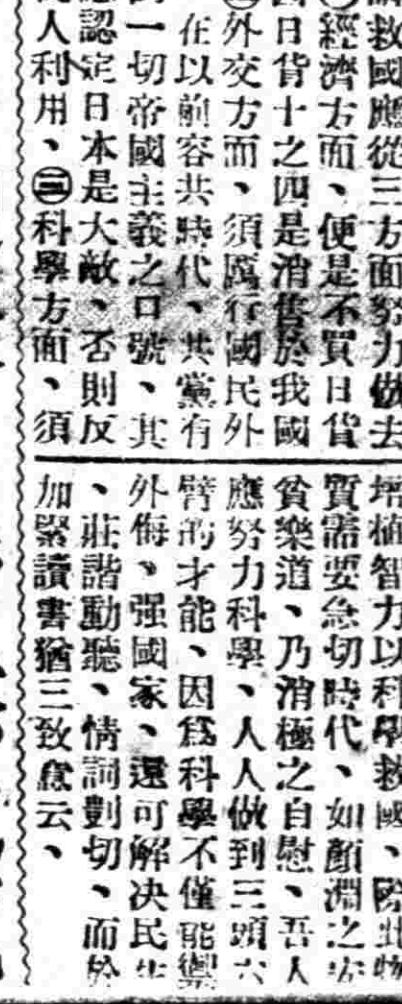 救國應從三方面努力做去
經濟方面、便是不買日貨
日貨十之四是消售於我國
外交方面、須厲行國民外
在以前容共時代、共黨有
一切帝國主義之口號、其
認定日本是大敵、否則反
人利用、㊂科學方面、須
培植智力以科學救國、際此物
質需要急切時代、如顏淵之安
貧樂道、乃消極之自慰、吾人
應努力科學、人人做到三頭六
臂的才能、因爲科學不僅能禦
外侮、强國家、還可解决民生
、莊諧動聽、情詞剴切、而於
加緊讀書猶三致意云、